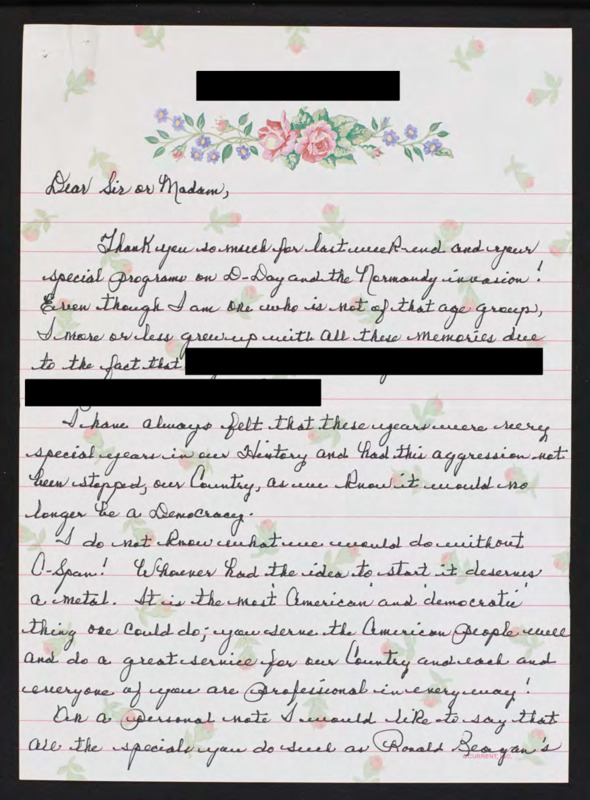 Dear Sir or Madam,
Thank you so much for last week-end and your
special programs on D-Day and the Normandy invasion!
Even though I am one who is not of that age group,
I more or less grew up with all these memories due
to the fact that
I have always felt that these years were very
special years in our History and had this aggression not
been stopped, our Country, as we know it would no
longer be a Democracy.
I do not know what we would do without
C-Span! Whoever had the idea to start it deserves
a metal. It is the most 'American' and 'democratic'
thing one could do; you serve the American people well
and do a great service for our Country and each and
everyone of you are professional in every way!
On a personal note I would like to say that
all the specials you do such as Ronald Reagan's
©CURRENT, INC.